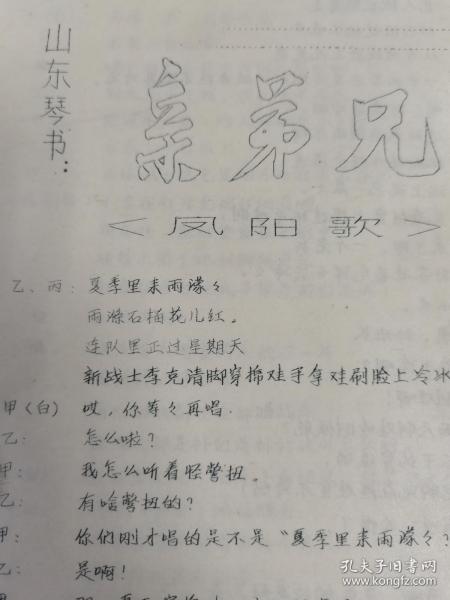 山东琴书：
亲弟兄
<凤阳歌>
乙、丙：夏季里来雨濛々
雨涤石榴花儿红。
连队里正过星期天
新战士李克清脚穿棉鞋手拿鞋刷脸上冷冰
甲（白）哎，你等々再唱.
乙：怎么啦？
甲：我怎么听着怪彆扭。
乙：有啥彆扭的？
甲：你们刚才唱的是不是“夏季里来雨濛々？
乙：是啊！
孔夫子旧书网